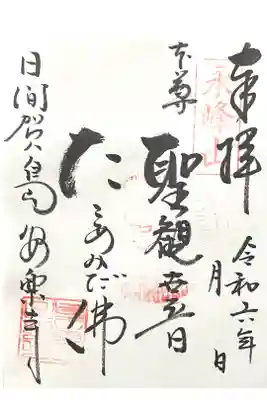 奉拝
令和六年
月 日
永峰山
本尊
聖観世音
たこあみだ佛
日間賀島 安楽寺